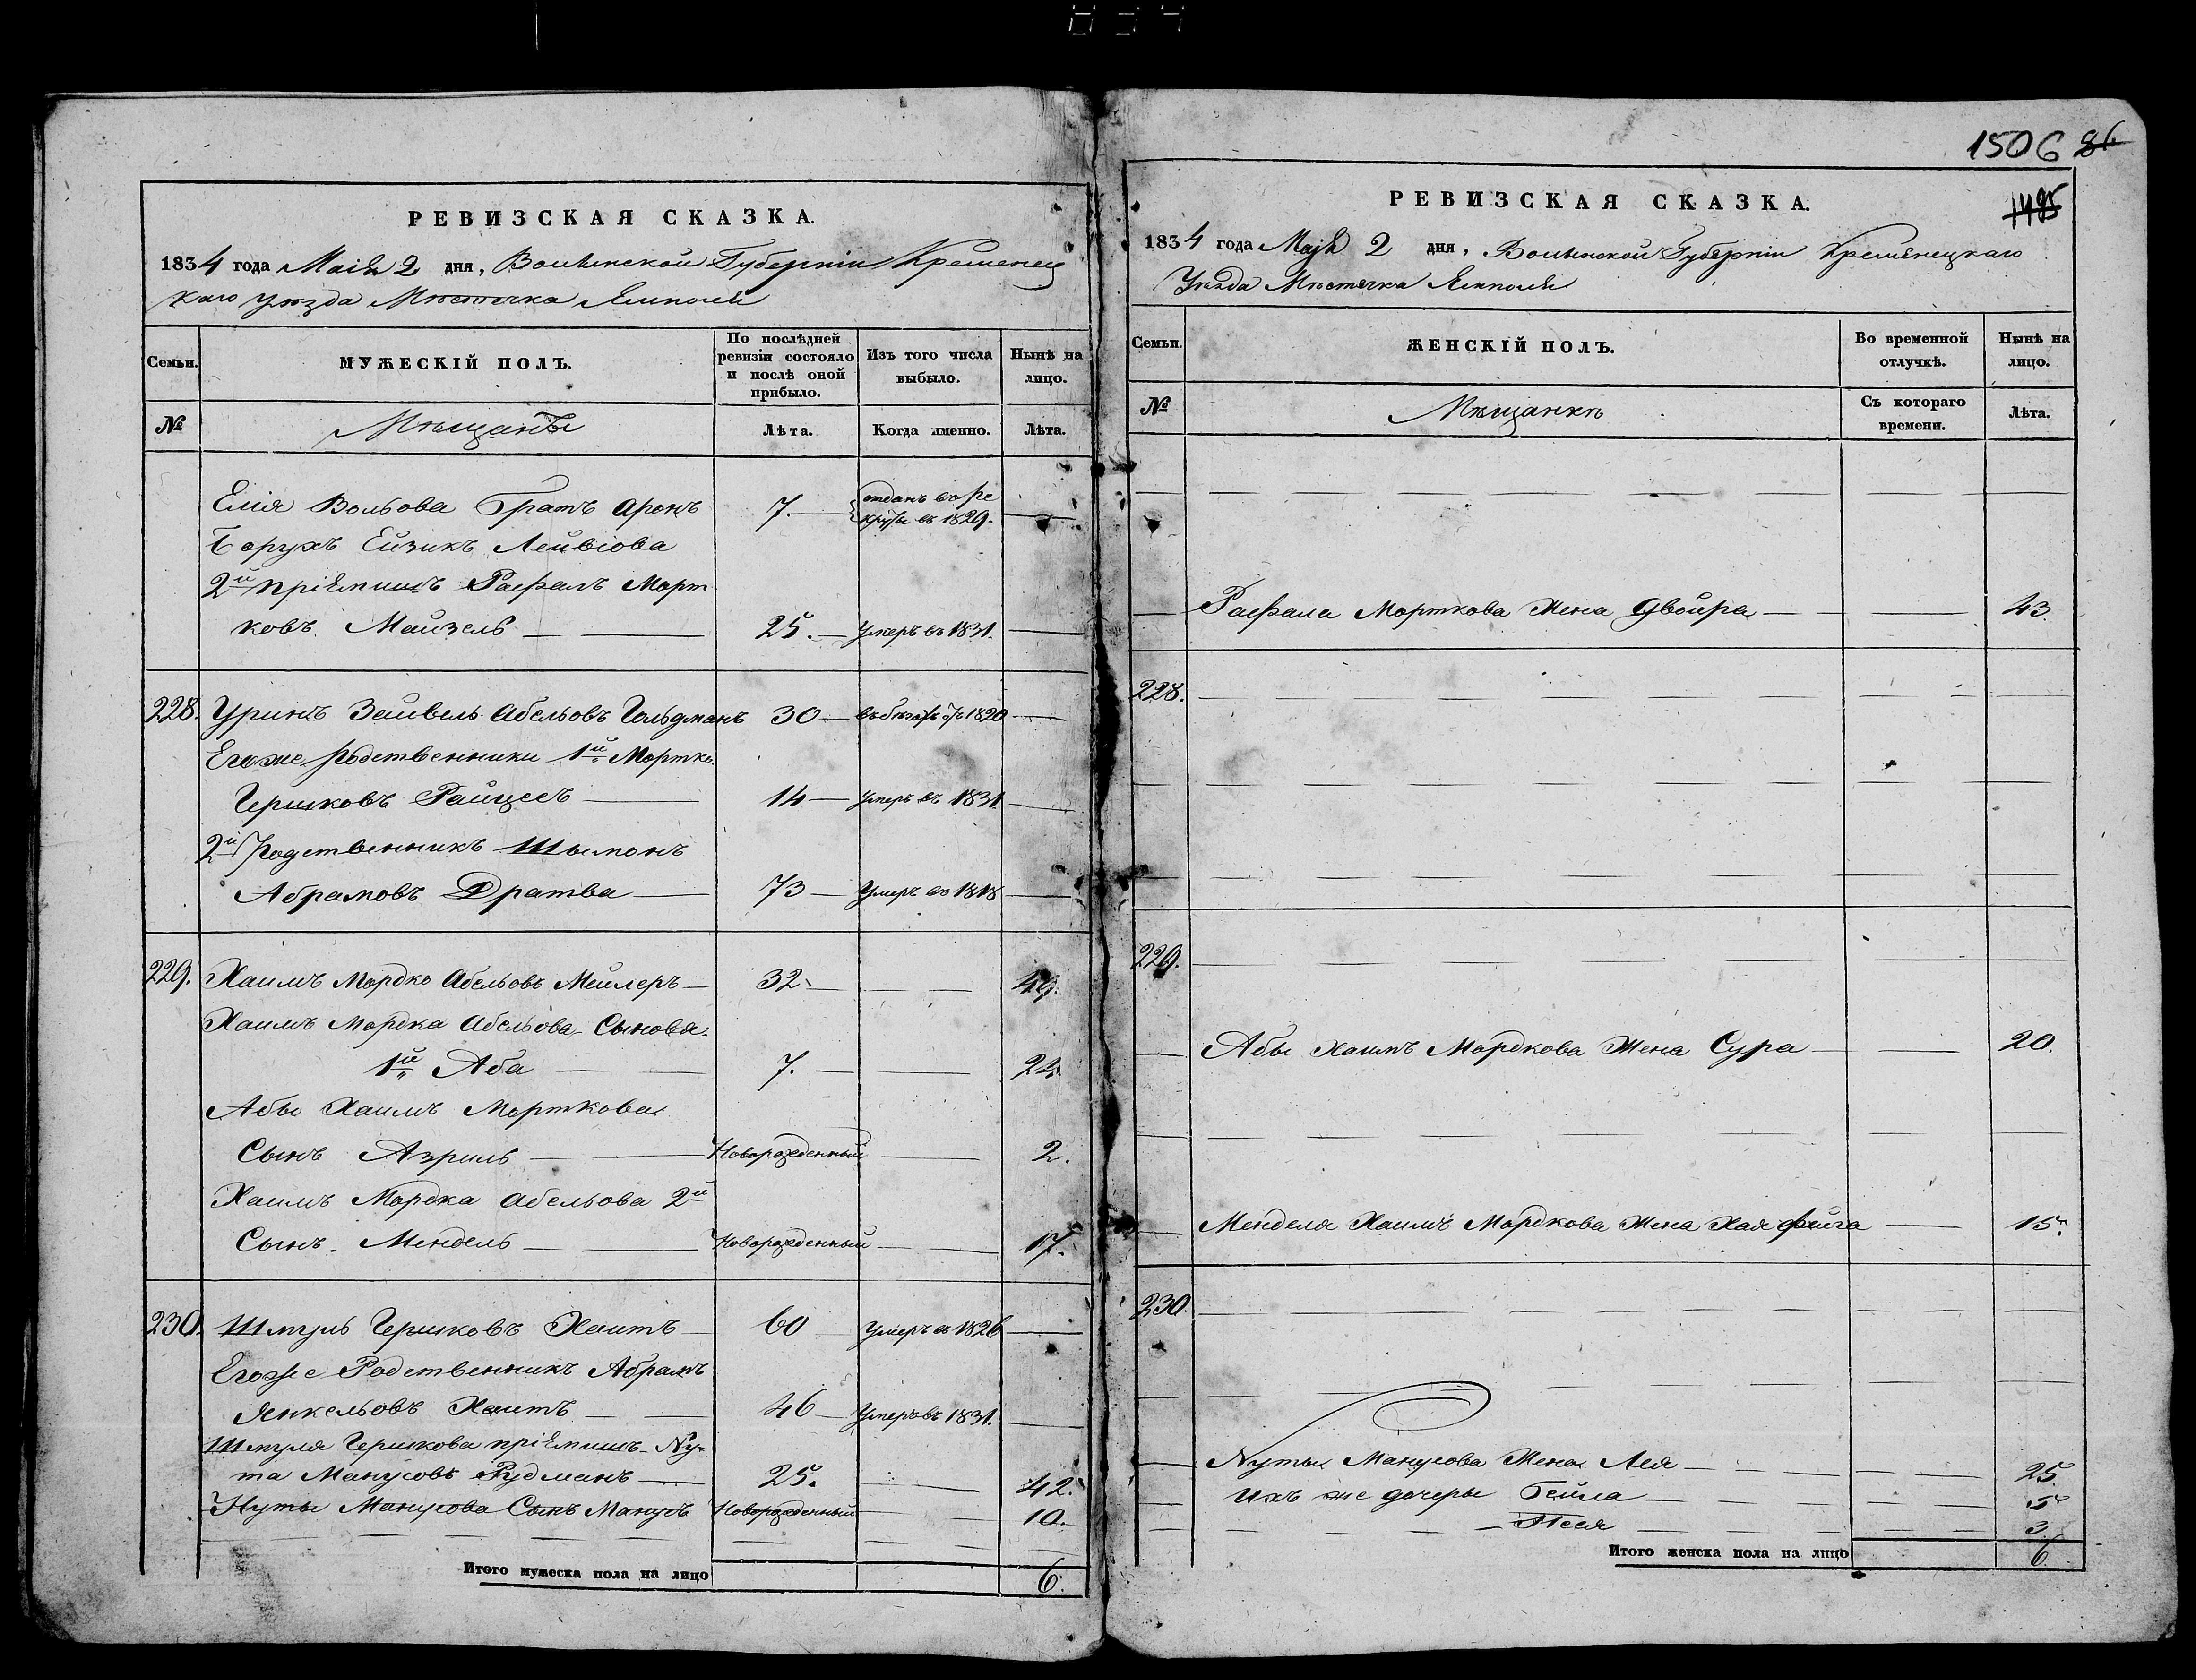 1506 86
РЕВИЗСКАЯ СКАЗКА.
1834 года Маія 2 дня, Волынской Губерніи Кременец
каго уѣзда Мѣстечка Ямполя
Семьи.
МУЖЕСКІЙ ПОЛЪ.
По послѣдней ревизіи состояло и послѣ оной прибыло.
Изъ того числа выбыло.
Нынѣ на лицо.
№
Мѣщанъ
Лѣта.
Когда именно.
Лѣта.
Елія Вольова Братъ Аронъ 7. отданъ въ ре
Борухъ Ейзикъ Лейвіова круты въ 1829.
2й пріемишъ Рафалъ Морт
ковъ Майзель 25. Умеръ въ 1831.
228. Уринъ Зейвель Абельовъ Гольдманъ 30 въ бѣгахъ съ 1820
Егоже родственники 1й Мортко
Гершковъ Райцесъ 14 умеръ въ 1831
2й родственникъ Шымонъ
Абрамовъ Дратва 73 Умеръ въ 1818
229. Хаимъ Мордко Абельовъ Мейлеръ 32. 49.
Хаимъ Мордка Абельова Сыновья
1й Аба 7. 24.
Абы Хаимъ Морткова
Сынъ Азриль Новорожденный 2.
Хаимъ Мордка Абельова 2й
Сынъ Мендель Новорожденный 17.
230. Шмуль Гершковъ Хаитъ 60 умеръ въ 1826
Егоже Родственникъ Абрамъ
Янкельовъ Хаитъ 46 Умеръ въ 1831.
Шмуля Гершкова пріемишъ Ну-
та Манусовъ Рудманъ 25. 42.
Нуты Манусова Сынъ Манусъ Новорожденный 10.
Итого мужеска пола на лицо 6.
РЕВИЗСКАЯ СКАЗКА.
1495
1834 года Маія 2 дня, Волынской Губерніи Кременецкаго
Уѣзда Мѣстечка Ямполя
Семьи.
ЖЕНСКІЙ ПОЛЪ.
Во временной отлучкѣ.
Нынѣ на лицо.
№
Мѣщанки
Съ котораго времени.
Лѣта.
Рафала Морткова Жена Двойра 43.
228.
229.
Абы Хаимъ Мордкова Жена Сура 20.
Менделя Хаимъ Мордкова Жена Хая Фейга 15.
230.
Нуты Манусова Жена Лея 25
Ихъ же дочеры Бейла 5
Песя 3.
Итого женска пола на лицо 6.